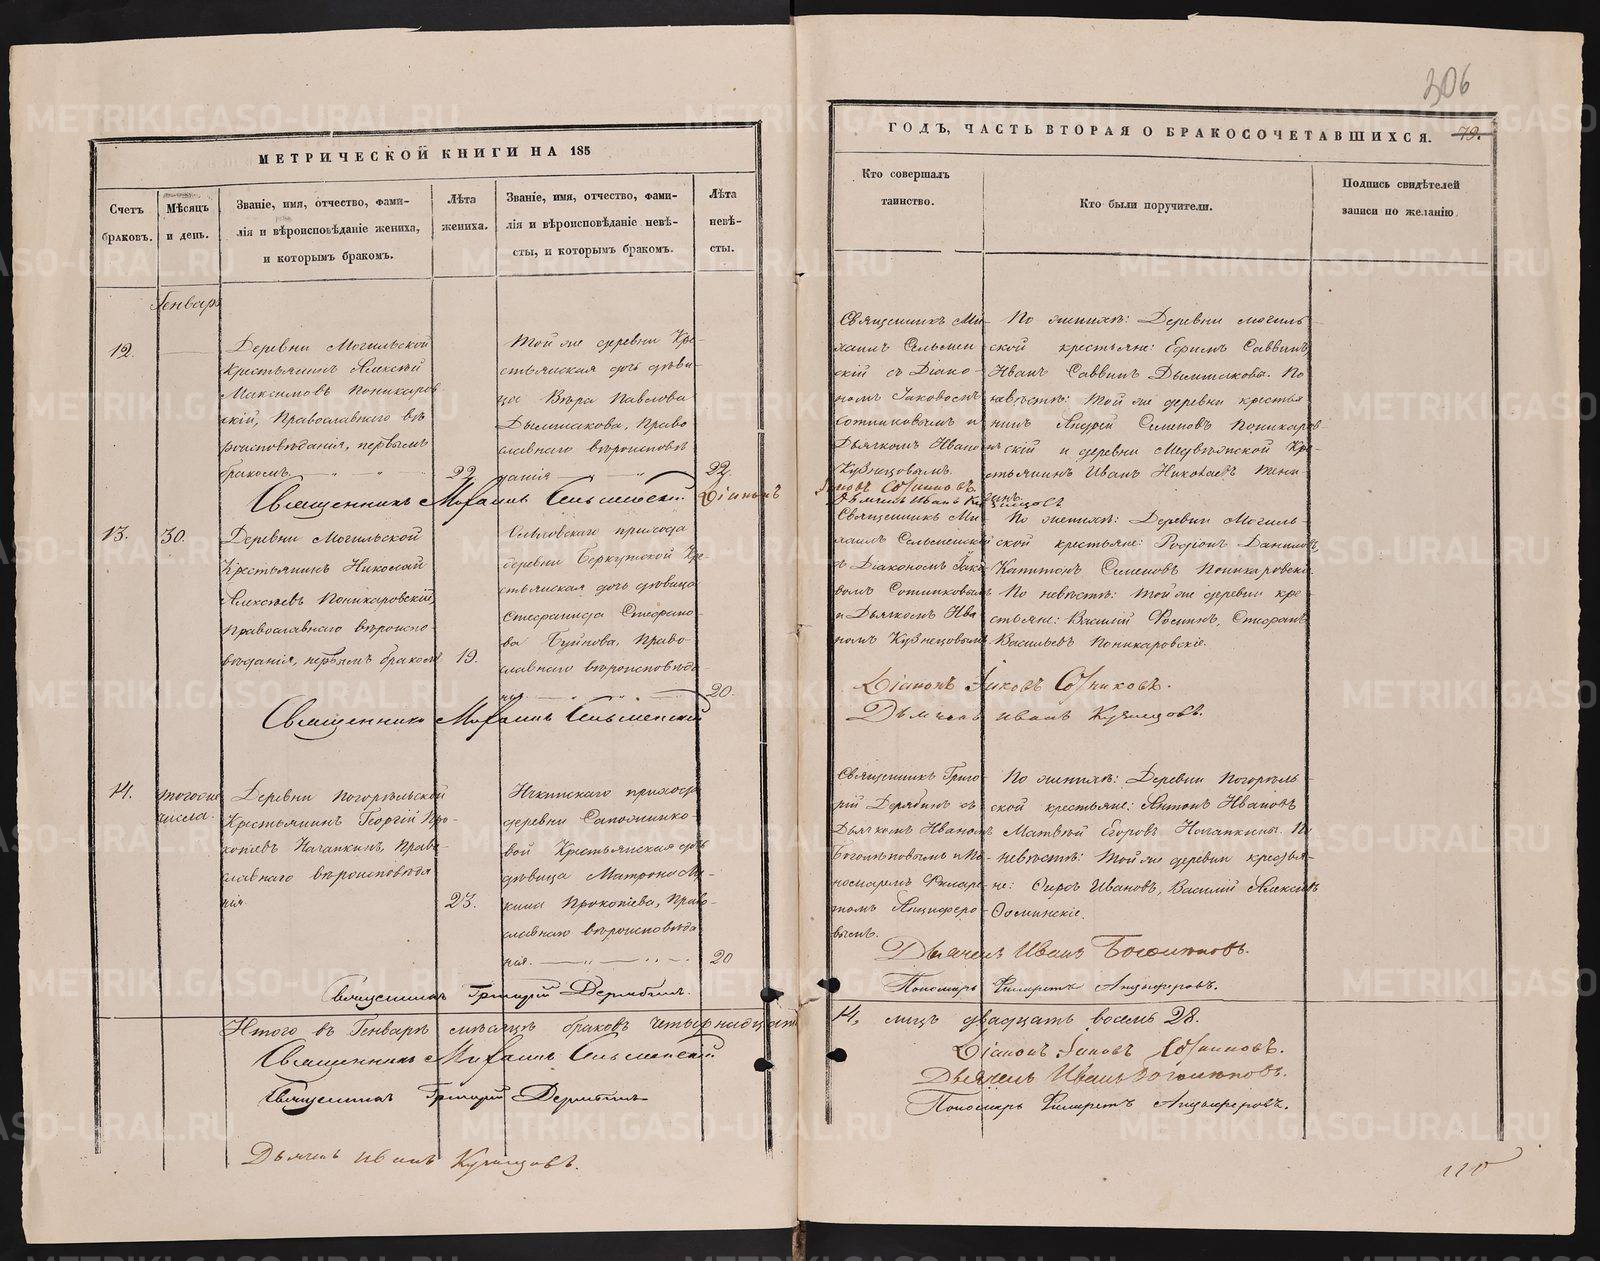 306
МЕТРИЧЕСКОЙ КНИГИ НА 185
Счетъ браковъ.
Мѣсяцъ и день.
Званіе, имя, отчество, фами-
лія и вѣроисповѣданіе жениха,
и которымъ бракомъ.
Лѣта
жениха.
Званіе, имя, отчество, фами-
лія и вѣроисповѣданіе невѣ-
сты, и которымъ бракомъ.
Лѣта
невѣ-
сты.
Генварь
12.
Деревни Могильской
Крестьянинъ Алексѣй
Максимовъ Поникаров
скій, Православнаго вѣ
роисповѣданія, первымъ
бракомъ
22
Той же деревни Кре-
стьянская дочь дѣви-
ца Вѣра Павлова
Дымшакова, Право
славнаго вѣроисповѣ
данія
22.
Священникъ Михаилъ Сельменскій Діаконъ
13.
30.
Деревни Могильской
Крестьянинъ Николай
Алексѣевъ Поникаровскій,
Православнаго вѣроиспо-
вѣданія, первымъ бракомъ
19.
прихода
деревни Беркутской Кре
стьянская дочь дѣвица
Стефанида Стефано-
ва Буйнова, Право-
славнаго вѣроисповѣда
нія
20.
Священникъ Михаилъ Сельменскій
14.
тогоже
числа.
Деревни Погорѣльской
Крестьянинъ Георгій Про-
копіевъ Начапкинъ, Право-
славнаго вѣроисповѣда
нія
23.
прихода
деревни Сапожнико-
вой Крестьянская дочь
дѣвица Матрона Ми-
кина Прокопіева, Право-
славнаго вѣроисповѣда
нія.
20
Священникъ Григорій Дерябинъ.
Итого въ Генварѣ мѣсяцѣ браковъ четырнадцать
Священникъ Михаилъ Сельменскій
Священникъ Григорій Дерябинъ
Дьячекъ Иванъ Кузнецовъ.
ГОДЪ, ЧАСТЬ ВТОРАЯ О БРАКОСОЧЕТАВШИХСЯ. 79.
Кто совершалъ
таинство.
Кто были поручители.
Подпись свидѣтелей
записи по желанію.
Священникъ Ми-
хаилъ Сельмен
скій съ Діако-
номъ Іаковомъ
Сотниковымъ и
Дьячкомъ Ивано
Кузнецовымъ.
По женихѣ: Деревни Могиль
ской крестьяне: Ефимъ Саввинъ,
Иванъ Саввинъ Дымшаковы. По
невѣстѣ: Той же деревни крестья
нинъ Андрей Семеновъ Поникаров
скій и деревни Медвѣжской Кре-
стьянинъ Иванъ Николаевъ
Іаковъ Сотниковъ.
Дьячекъ Иванъ Кузнецовъ
Священникъ Ми-
хаилъ Сельменскій
съ Діакономъ Іако
вомъ Сотниковымъ
и Дьячкомъ Ива
номъ Кузнецовымъ
По женихѣ: Деревни Могиль-
ской крестьяне: Родіонъ Даниловъ,
Капитонъ Семеновъ Поникаровскіе
По невѣстѣ: Той же деревни кре
стьяне: Василій Фосинъ, Стефанъ
Васильевъ Поникаровскіе.
Діаконъ Іаковъ Сотниковъ.
Дьячекъ Иванъ Кузнецовъ.
Священникъ Григо-
рій Дерябинъ съ
Дьячкомъ Иваномъ
Боголѣповымъ и По-
номаремъ Филаре-
томъ Анциферо-
вымъ.
По женихѣ: Деревни Погорѣль-
ской крестьяне: Антонъ Ивановъ
Матвѣй Егоровъ Начапкины. По
невѣстѣ: Той же деревни крестья-
не: Сидоръ Ивановъ, Василій Алексѣевъ
Фоминскіе.
Дьячекъ Иванъ Боголѣповъ.
Пономарь Филаретъ Анциферовъ.
14, лицъ двадцать восемь 28.
Діаконъ Іаковъ Сотниковъ.
Дьячекъ Иванъ Боголѣповъ.
Пономарь Филаретъ Анциферовъ.
METRIKI.GASO-URAL.RU